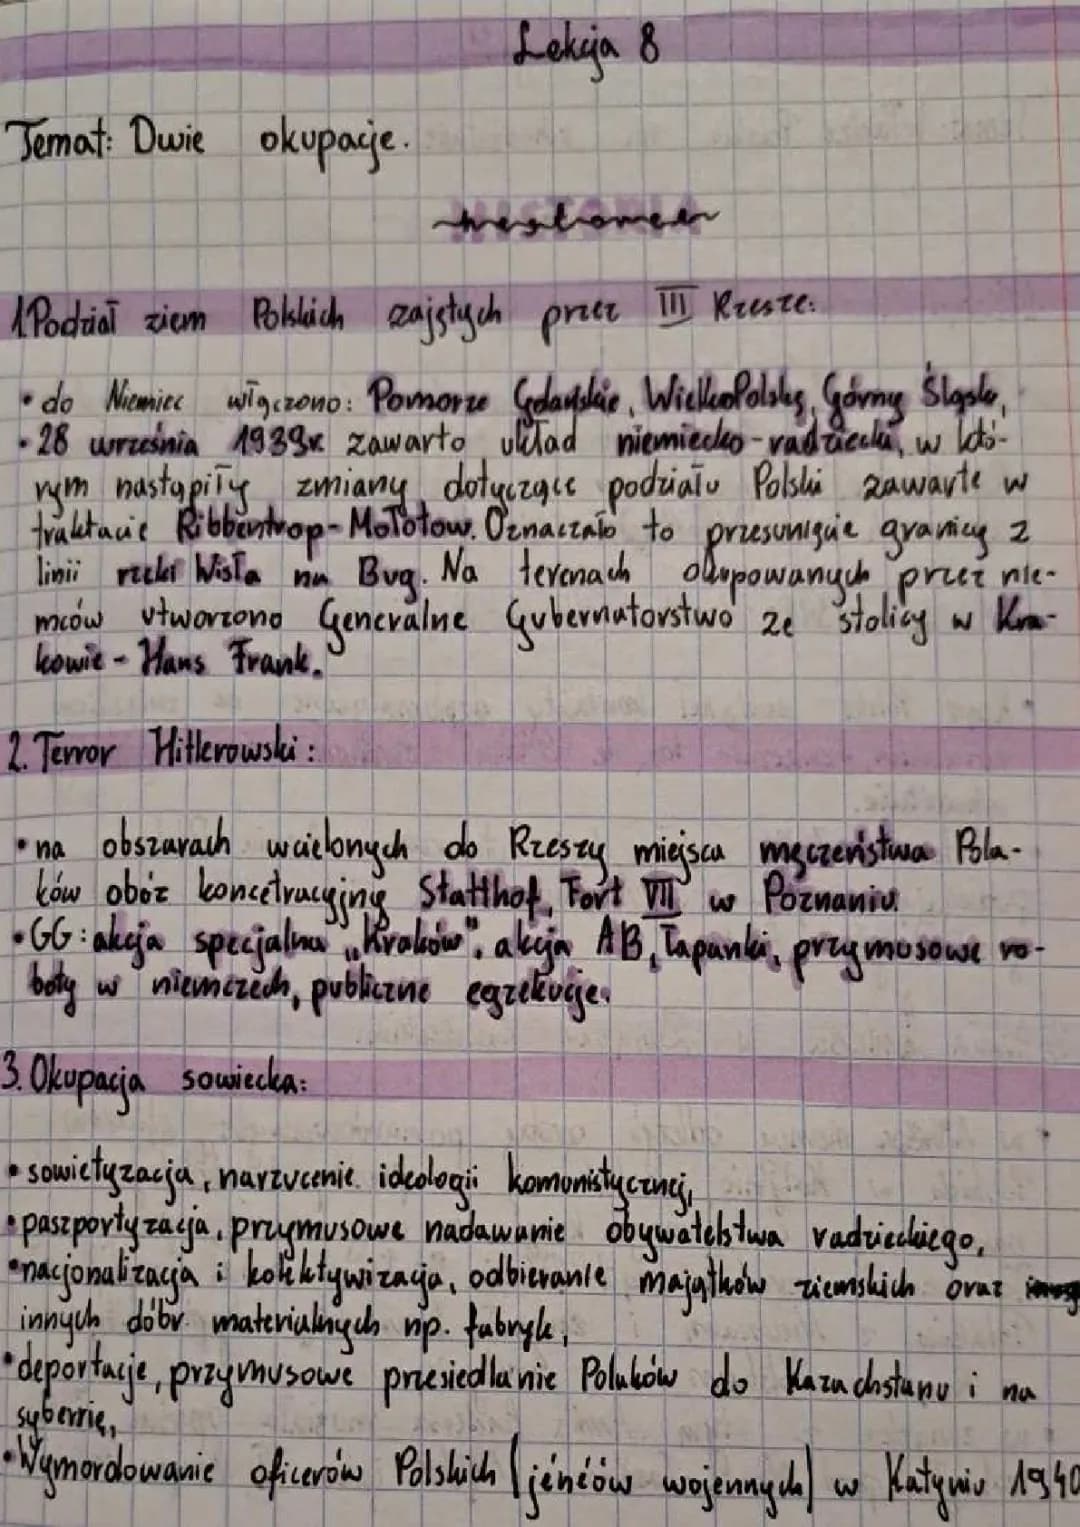 Lekcja 8
Temat: Dwie okupacje.
1. Podział ziem Polskich zajętych przez III Rzesze:
• do Niemiec włączono: Pomorze Gdańskie, WielkoPolskę, Górny Śląsk,
• 28 września 1939r zawarto układ niemiecko-radziecki, w któ-
rym nastąpiły zmiany dotyczące podziału Polski zawarte w
traktacie Ribbentrop-Mołotow. Oznaczało to przesunięcie granicy z
linii rzeki Wisła na Bug. Na terenach okupowanych przez nie-
mców utworzono Generalne Gubernatorstwo ze stolicą w Kra-
kowie - Hans Frank.
2. Terror Hitlerowski:
• na obszarach wcielonych do Rzeszy miejsca męczeństwa Pola-
ków obóz koncetracyjny Statthof, Fort VII w Poznaniu.
• GG: akcja specjalna „Kraków", akcja AB, łapanki, przymusowe ro-
boty w niemczech, publiczne egzekucje.
3. Okupacja sowiecka:
• sowietyzacja, narzucenie ideologii komunistycznej,
• paszportyzacja, przymusowe nadawanie obywatelstwa radzieckiego,
• nacjonalizacja i kolektywizacja, odbieranie majątków ziemskich oraz
innych dóbr materialnych np. fabryk,
• deportacje, przymusowe przesiedlanie Polaków do Kazachstanu i na
syberrię,
• Wymordowanie oficerów Polskich (jéńców wojennych) w Katyniu 1940